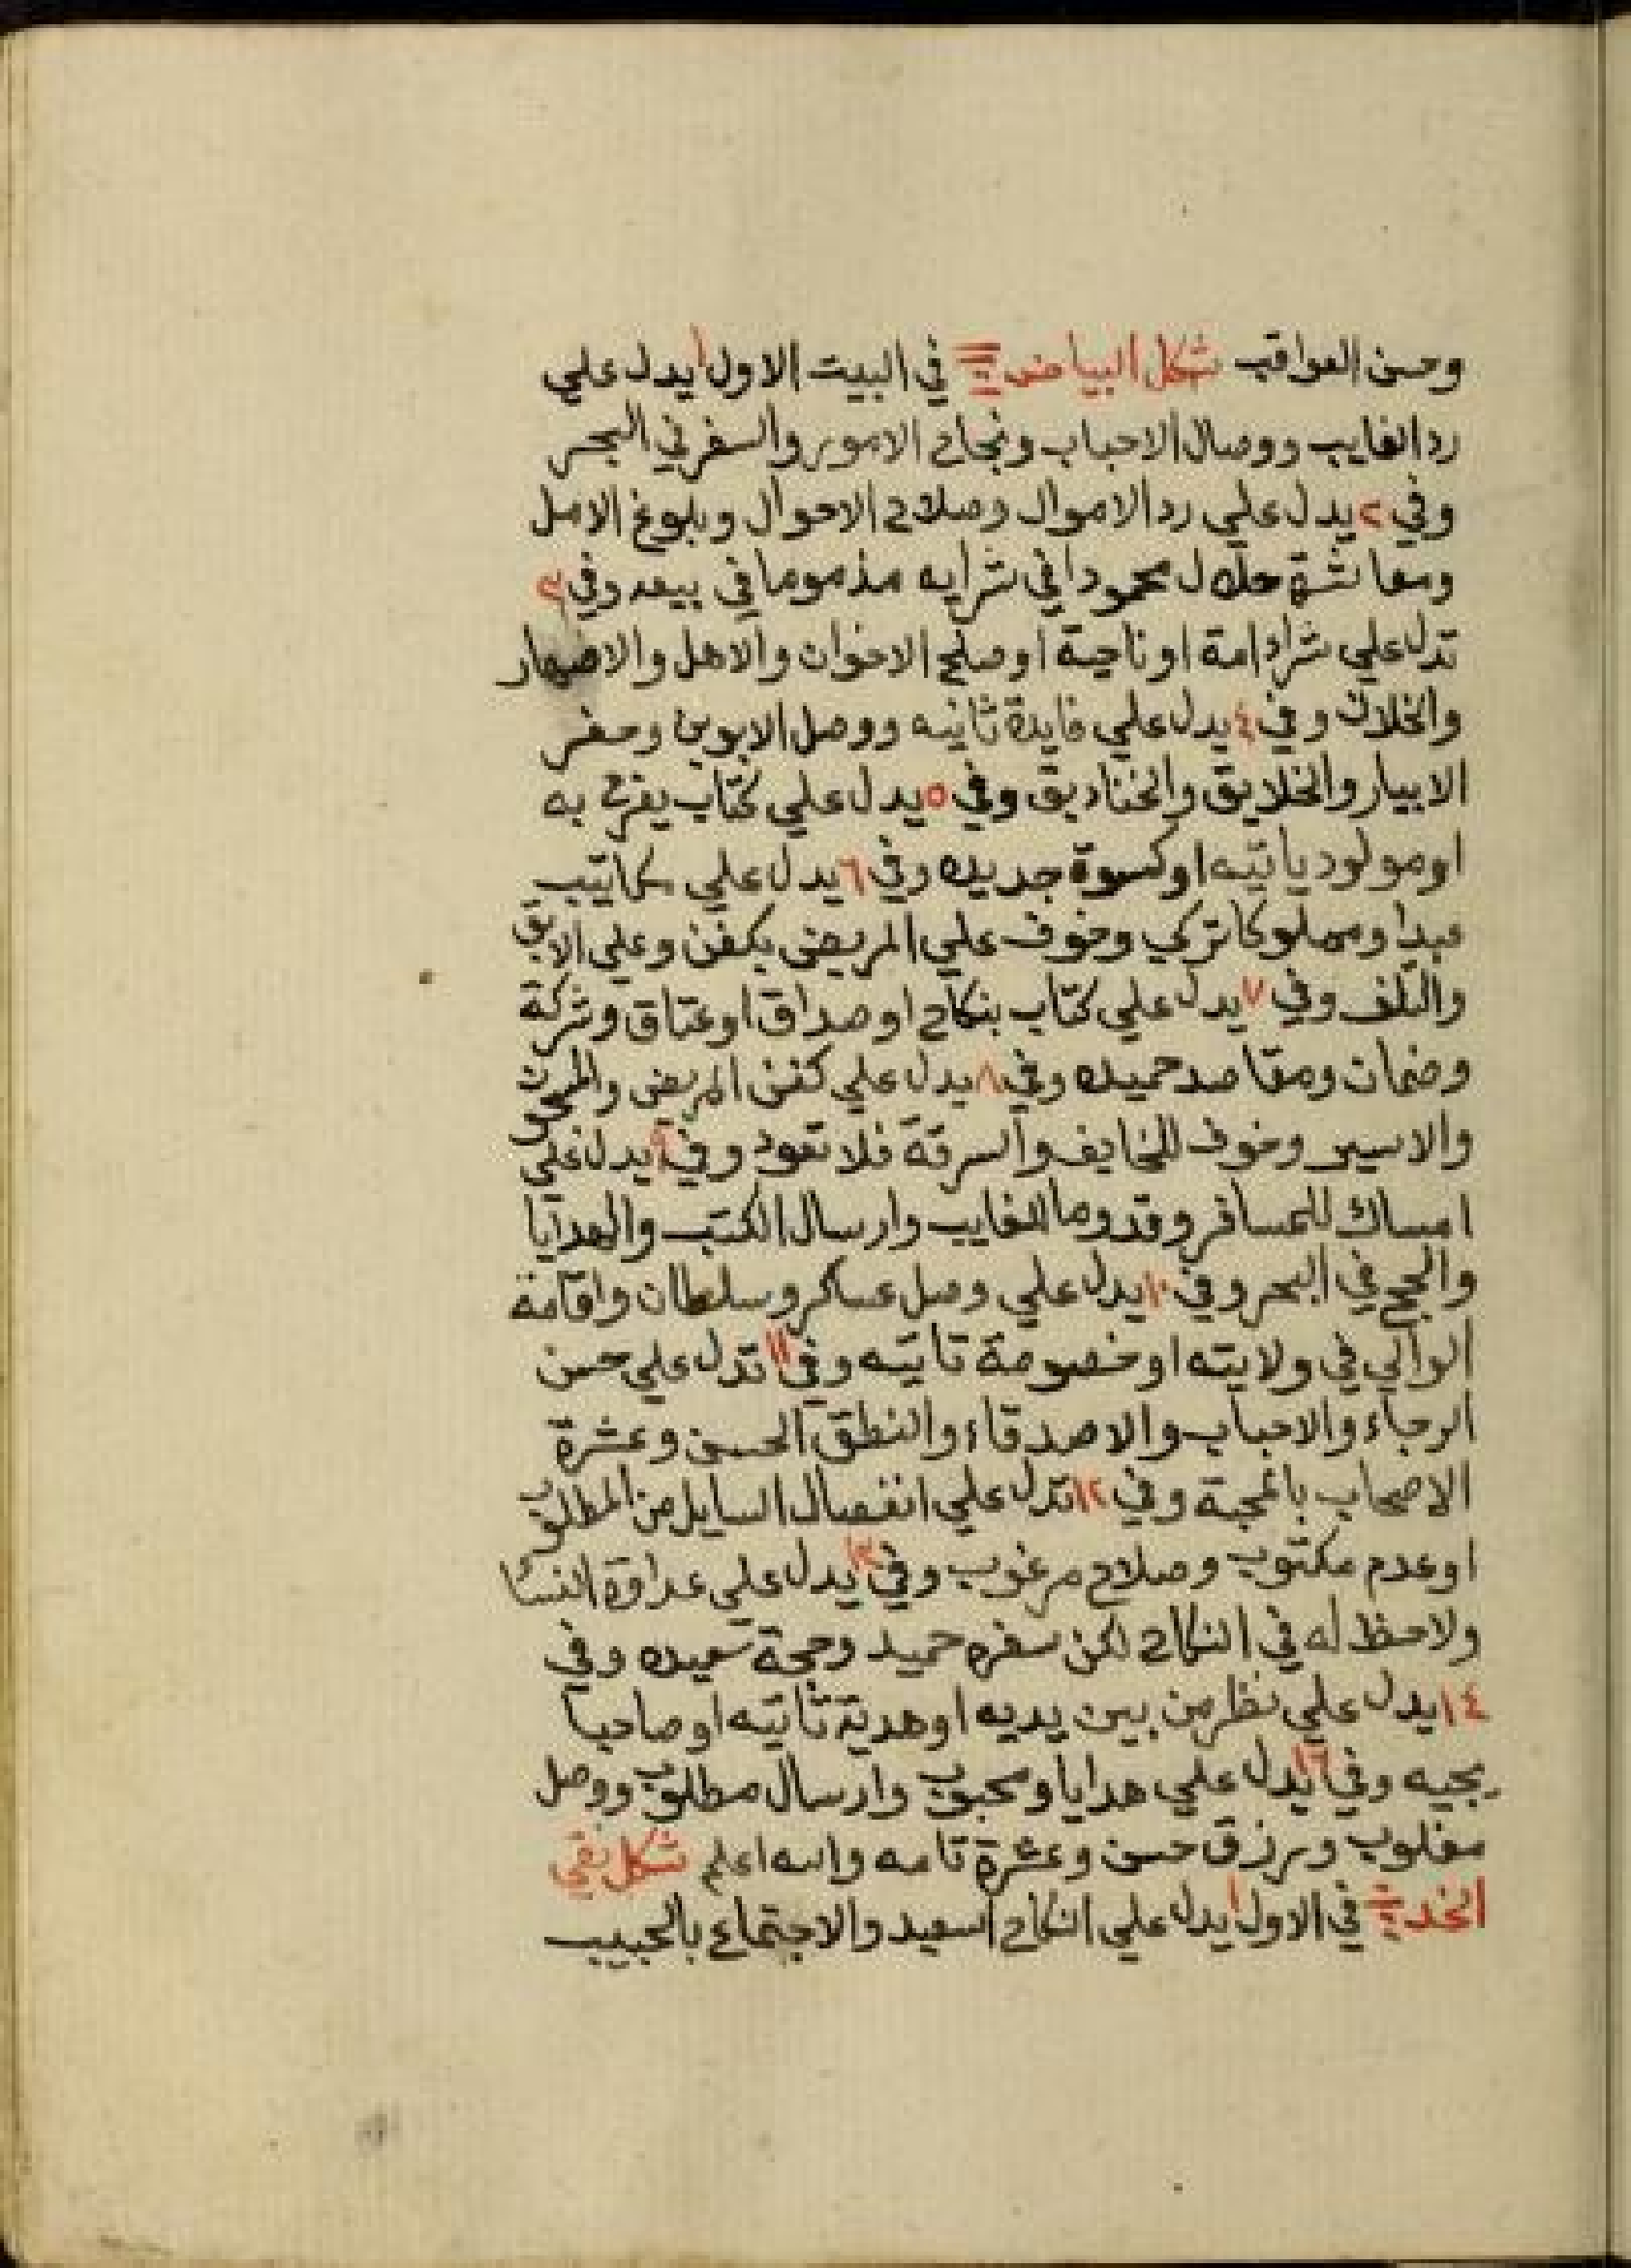 وحسن العواقب شكل البياض في البيت الاول ا يدل علي
رد الغايب ووصال الاحباب ونجاح الامور والسفر في البحر
وفي ٢ يدل علي رد الاموال وصلاح الاحوال وبلوغ الامل
ومعا حلال محمودا في شرايه مذموما في بيعه وفي ٣
تدل علي شرا امة او ناحية او صلح الاخوان والاهل والاصهار
وفي ٤ يدل علي فايدة ثانيه ووصل الابوين وحفر
الابيار والخلايق والخناديق وفي ٥ يدل علي كتاب يفرح به
او مولود ياتيه او كسوة جديده وفي ٦ يدل علي مكاتيب
عبدا ومملوكا تركي وخوف علي المريض بكفن وعلي
والتلف وفي ٧ يدل علي كتاب بنكاح او صداق او عتاق وشركة
وضمان ومقاصد حميده وفي ٨ يدل علي كفن المريض
والاسير وخوف للخايف والسرقة فلا تعود وفي ٩ يدل علي
امساك للمسافر وقدوما للغايب وارسال الكتب والهدايا
والحج في البحر وفي ١٠ يدل علي وصل عساكر وسلطان واقامة
الوالي في ولايته او خصومة تاتيه وفي ١١ تدل علي حسن
الرجاء والاحباب والاصدقاء والنطق الحسن وعشرة
الاصحاب بالمحبة وفي ١٢ تدل علي انفصال السايل من المطلوب
او عدم مكتوب وصلاح مرغوب وفي ١٣ يدل علي عداوة النسا
ولا حظ له في النكاح لكن سفره حميد وحجة سعيده وفي
١٤ يدل علي نظر من بين يديه او هدية تاتيه او صاحبا
يجيه وفي ١٦ يدل علي هدايا ومحبوب وارسال مطلوب ووصل
مغلوب ورزق حسن وعشرة تامه والله اعلم شكل نقي
الخد في الاول ا يدل علي النكاح السعيد والاجتماع بالحبيب